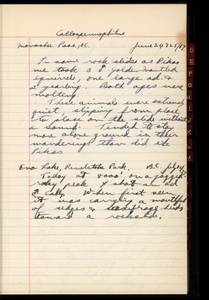 Callospermophilus
Monashee Pass, BC. June 24/25/47
In same rock slides as Pikas
we took 2 golden mantled
squirrels, one large ad +
a yearling. Both ages were
moulting.
These animals were extremely
quiet slipping from place
to place on the slide without
a sound. Tended to stay
more above ground in their
wanderings than did the
Pikas
Eva Lake, Revelstoke Park. B.C.
Today at 8000' on a jagged
rocky peak I shot an ad
Cally. When first seen
it was carrying a mouthful
of sedges + saxifrage
toward a rockslide.